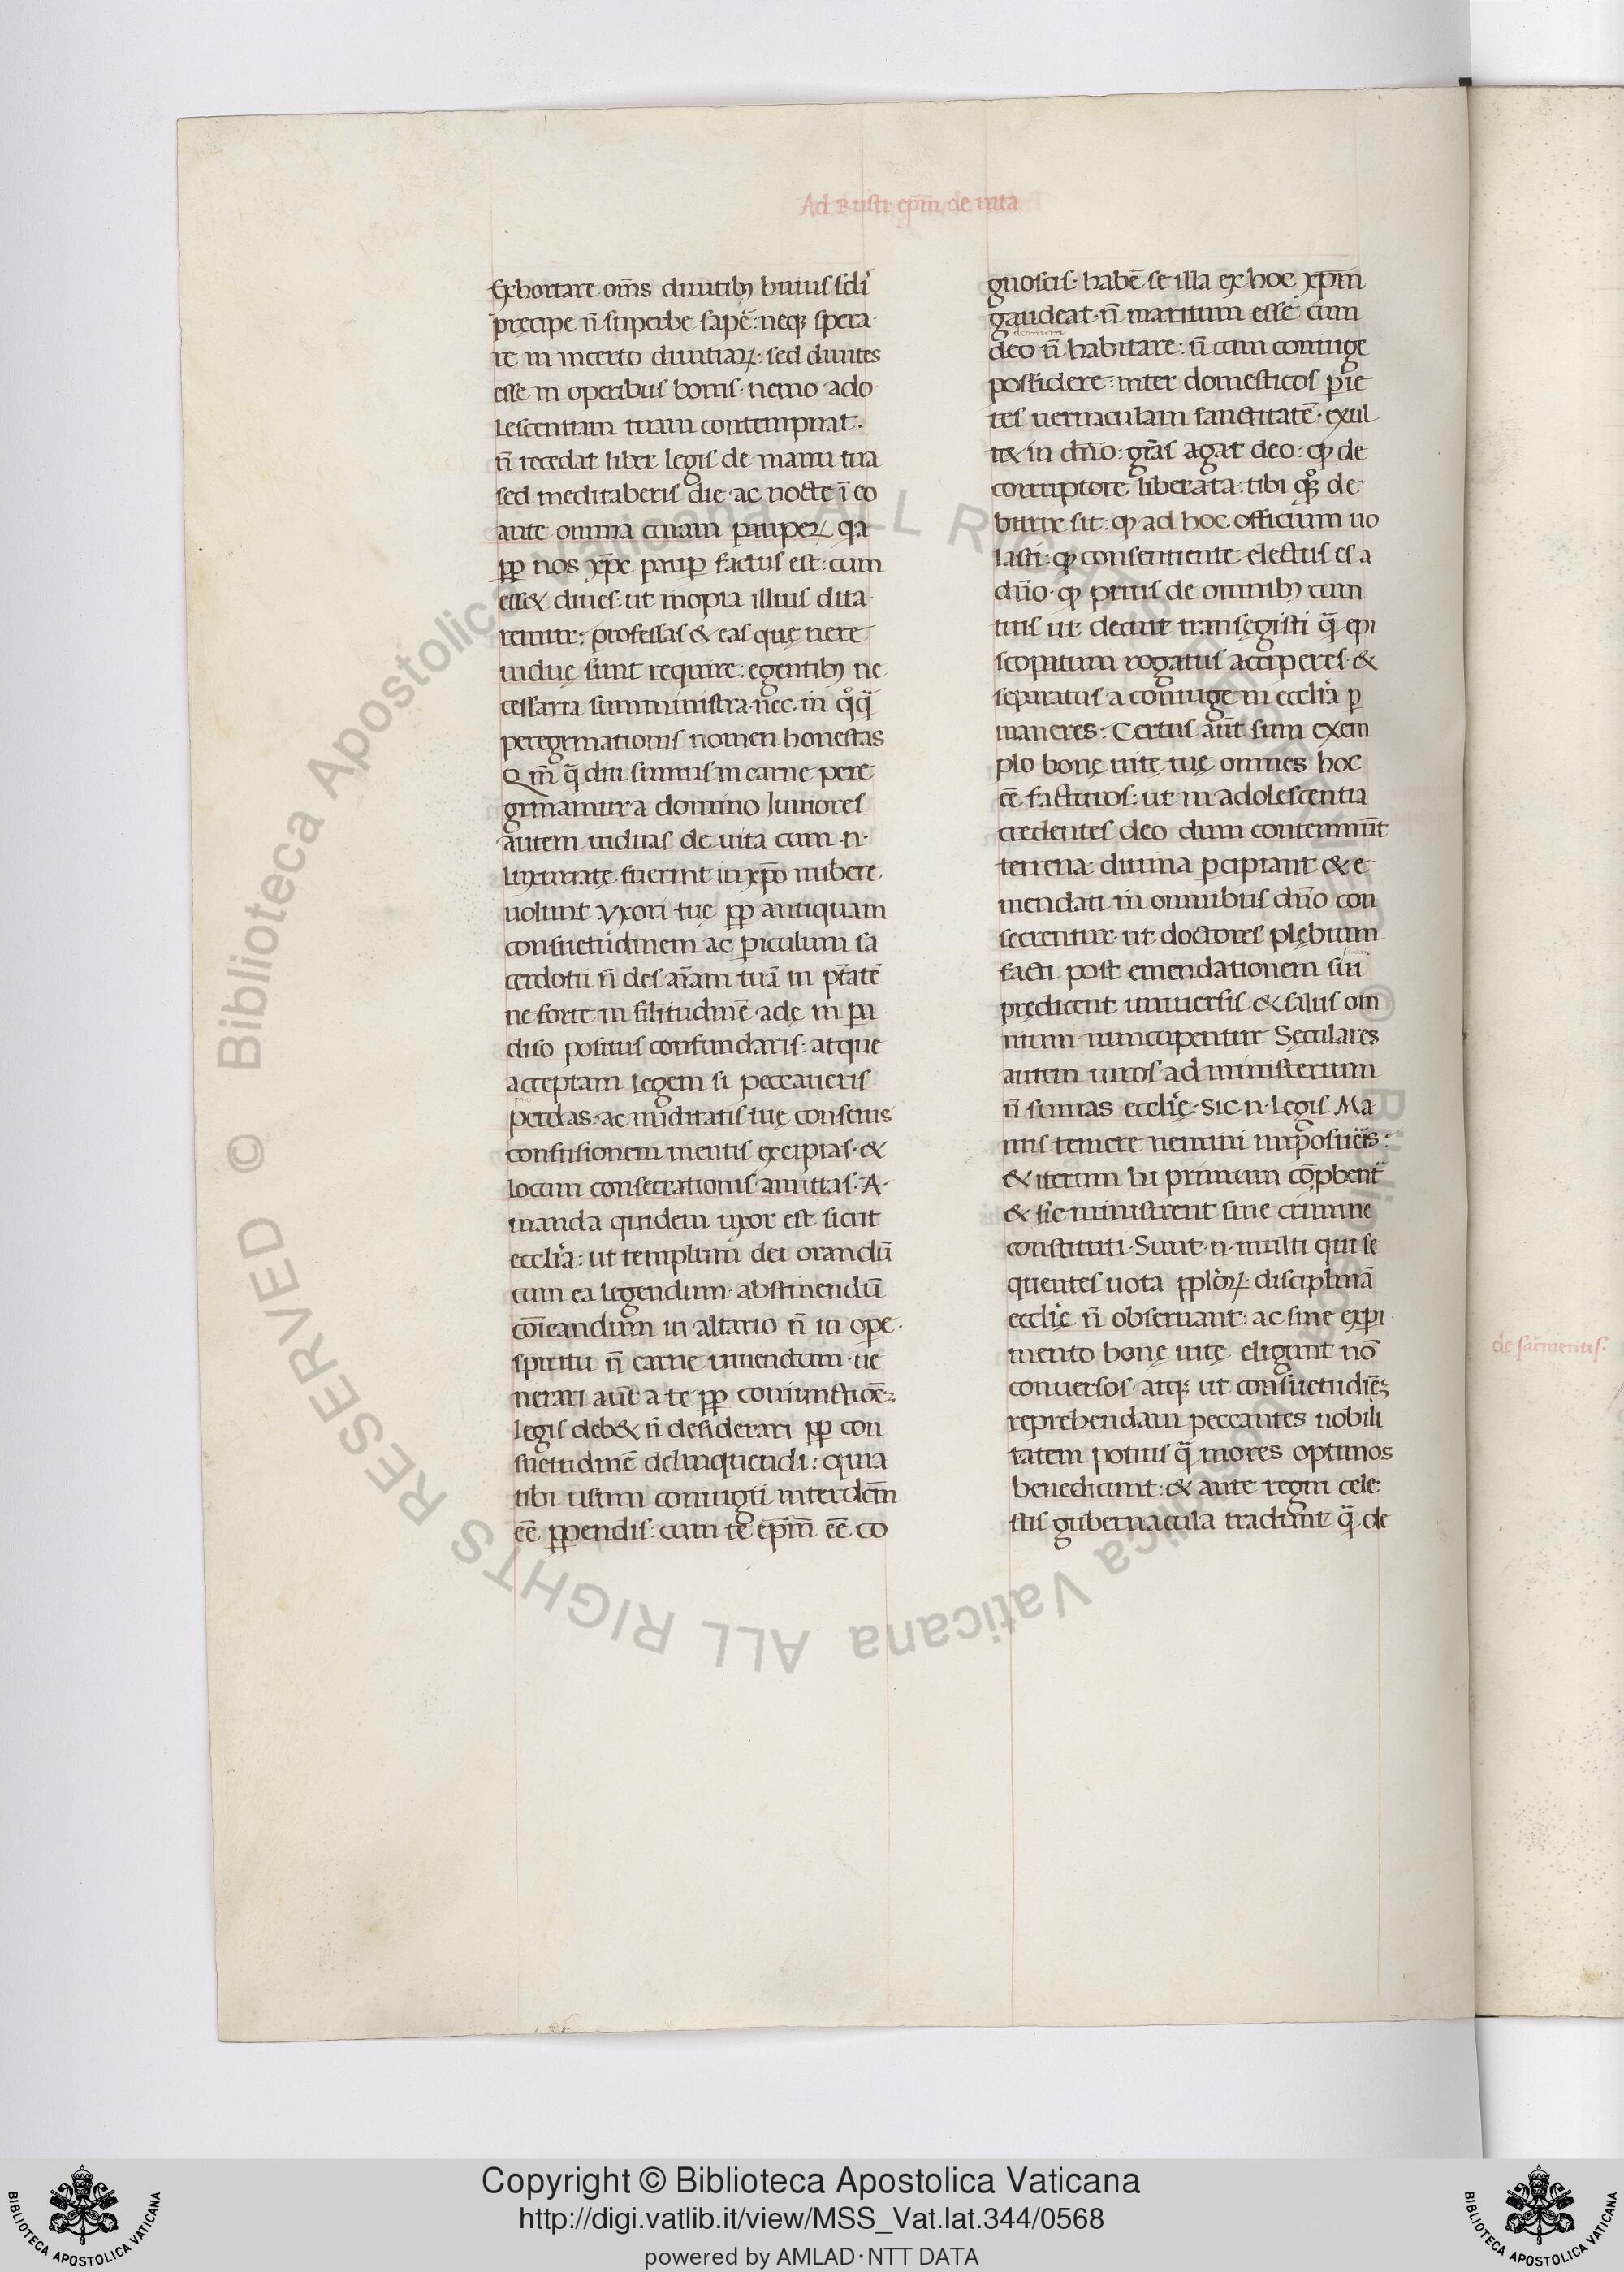 Ad Rusti. ep̄m, de uita
Exhortare om̄s diuitib; huius sc̄li
precipe n̄ superbe sapē: neq; spera
re in incerto diuitiaꝝ: sed diuites
esse in operibus bonis· nemo ado
lescentiam tuam contempnat·
n̄ recedat liber legis de manu tua
sed meditaberis die ac nocte ī eo
ante omnia curam paupeꝝ qa
ꝓp nos xp̄c paup factus est: cum
ess& diues· ut inopia illius dita
remur: professas & eas quę uere
uiduę sunt require: egentib; ne
cessaria sumministra· nec in qͦq̄
peregrinationis nomen honestas
Qm̄ q̄diu sumus in carne pere
grinamur a domino Iuniores
autem uiduas de uita cum ·n·
luxuriatę fuerint in xp̄o nubere
uolunt Vxori tuę ꝓp antiquam
consuetudinem ac ꝑiculum sa
cerdotii n̄ des aīam tuā in pr̄atē
ne forte in similitudinē adę in pa
diso positus confundaris: atque
acceptam legem si peccaueris
perdas· ac nuditatis tuę conscius
confusionem mentis excipias· &
locum consecrationis amittas· A
manda quidem uxor est sicut
ecclīa: ut templum dei orandū
cum ea legendum· abstinendū
cōīcandum in altario n̄ in ope·
spiritu n̄ carne uiuendum· ue
nerari aūt a te ꝓp coniunctiōē
legis deb& n̄ desiderari ꝓp con
suetudinē delinquendi: quia
tibi usum coniugii interdcm̄
eē̄ ꝑpendis: cum te ep̄m̄ eē̄ co
gnoscis: habē se illa ex hoc xp̄m
gaudeat· n̄ maritum esse cum
domum
deo n̄ habitare: n̄ cum coniuge
possidere: inter domesticos parie
tes uernaculam sanctitatē· exul
t& in dn̄o: gr̄as agat deo: qp de
corruptore liberata: tibi qͦq; de
bitrix sit: qp ad hoc officium uo
lasti: qp consentiente electus es a
dn̄o· qp prius de omnib; cum
tuis ut decuit transegisti q̄ epi
scopatum rogatus acciperes· &
separatus a coniuge in ecclīa ꝑ
maneres: Certus aūt sum exem
plo bonę uitę tuę omnes hoc
eē̄ facturos: ut in adolescentia
credentes deo dum contemnūt
terrena· diuina ꝑcipiant & e
mendati in omnibus dn̄o con
secrentur· ut doctores plebium
facti post emendationem sui
predicent uniuersis & salus om
nium nuncupentur Seculares
autem uiros ad ministerium
n̄ sumas ecclīę· Sic ·n· legis Ma
nus temere nemini imposueīs:
& iterum hi primum cōprbent̄
& sic ministrent sine crimine
constituti· Sunt ·n· multi qui se
quentes uota pp̄loꝝ: disciplinā
ecclīę n̄ obseruant: ac sine exꝑi
mento bonę uitę eligunt nō
conuersos· atq; ut consuetudiē;
reprehendam peccantes nobili
tatem potius q̄ mores optimos
benedicunt: & ante regni cele:
stis gubernacula tradunt q̄ de
de sacr̄mentis·
© Biblioteca Apostolica Vaticana ALL RIGHTS RESERVED © Biblioteca Apostolica Vaticana ALL RIGHTS RESERVED
Copyright © Biblioteca Apostolica Vaticana
http://digi.vatlib.it/view/MSS_Vat.lat.344/0568
powered by AMLAD·NTT DATA
BIBLIOTECA APOSTOLICA VATICANA
BIBLIOTECA APOSTOLICA VATICANA